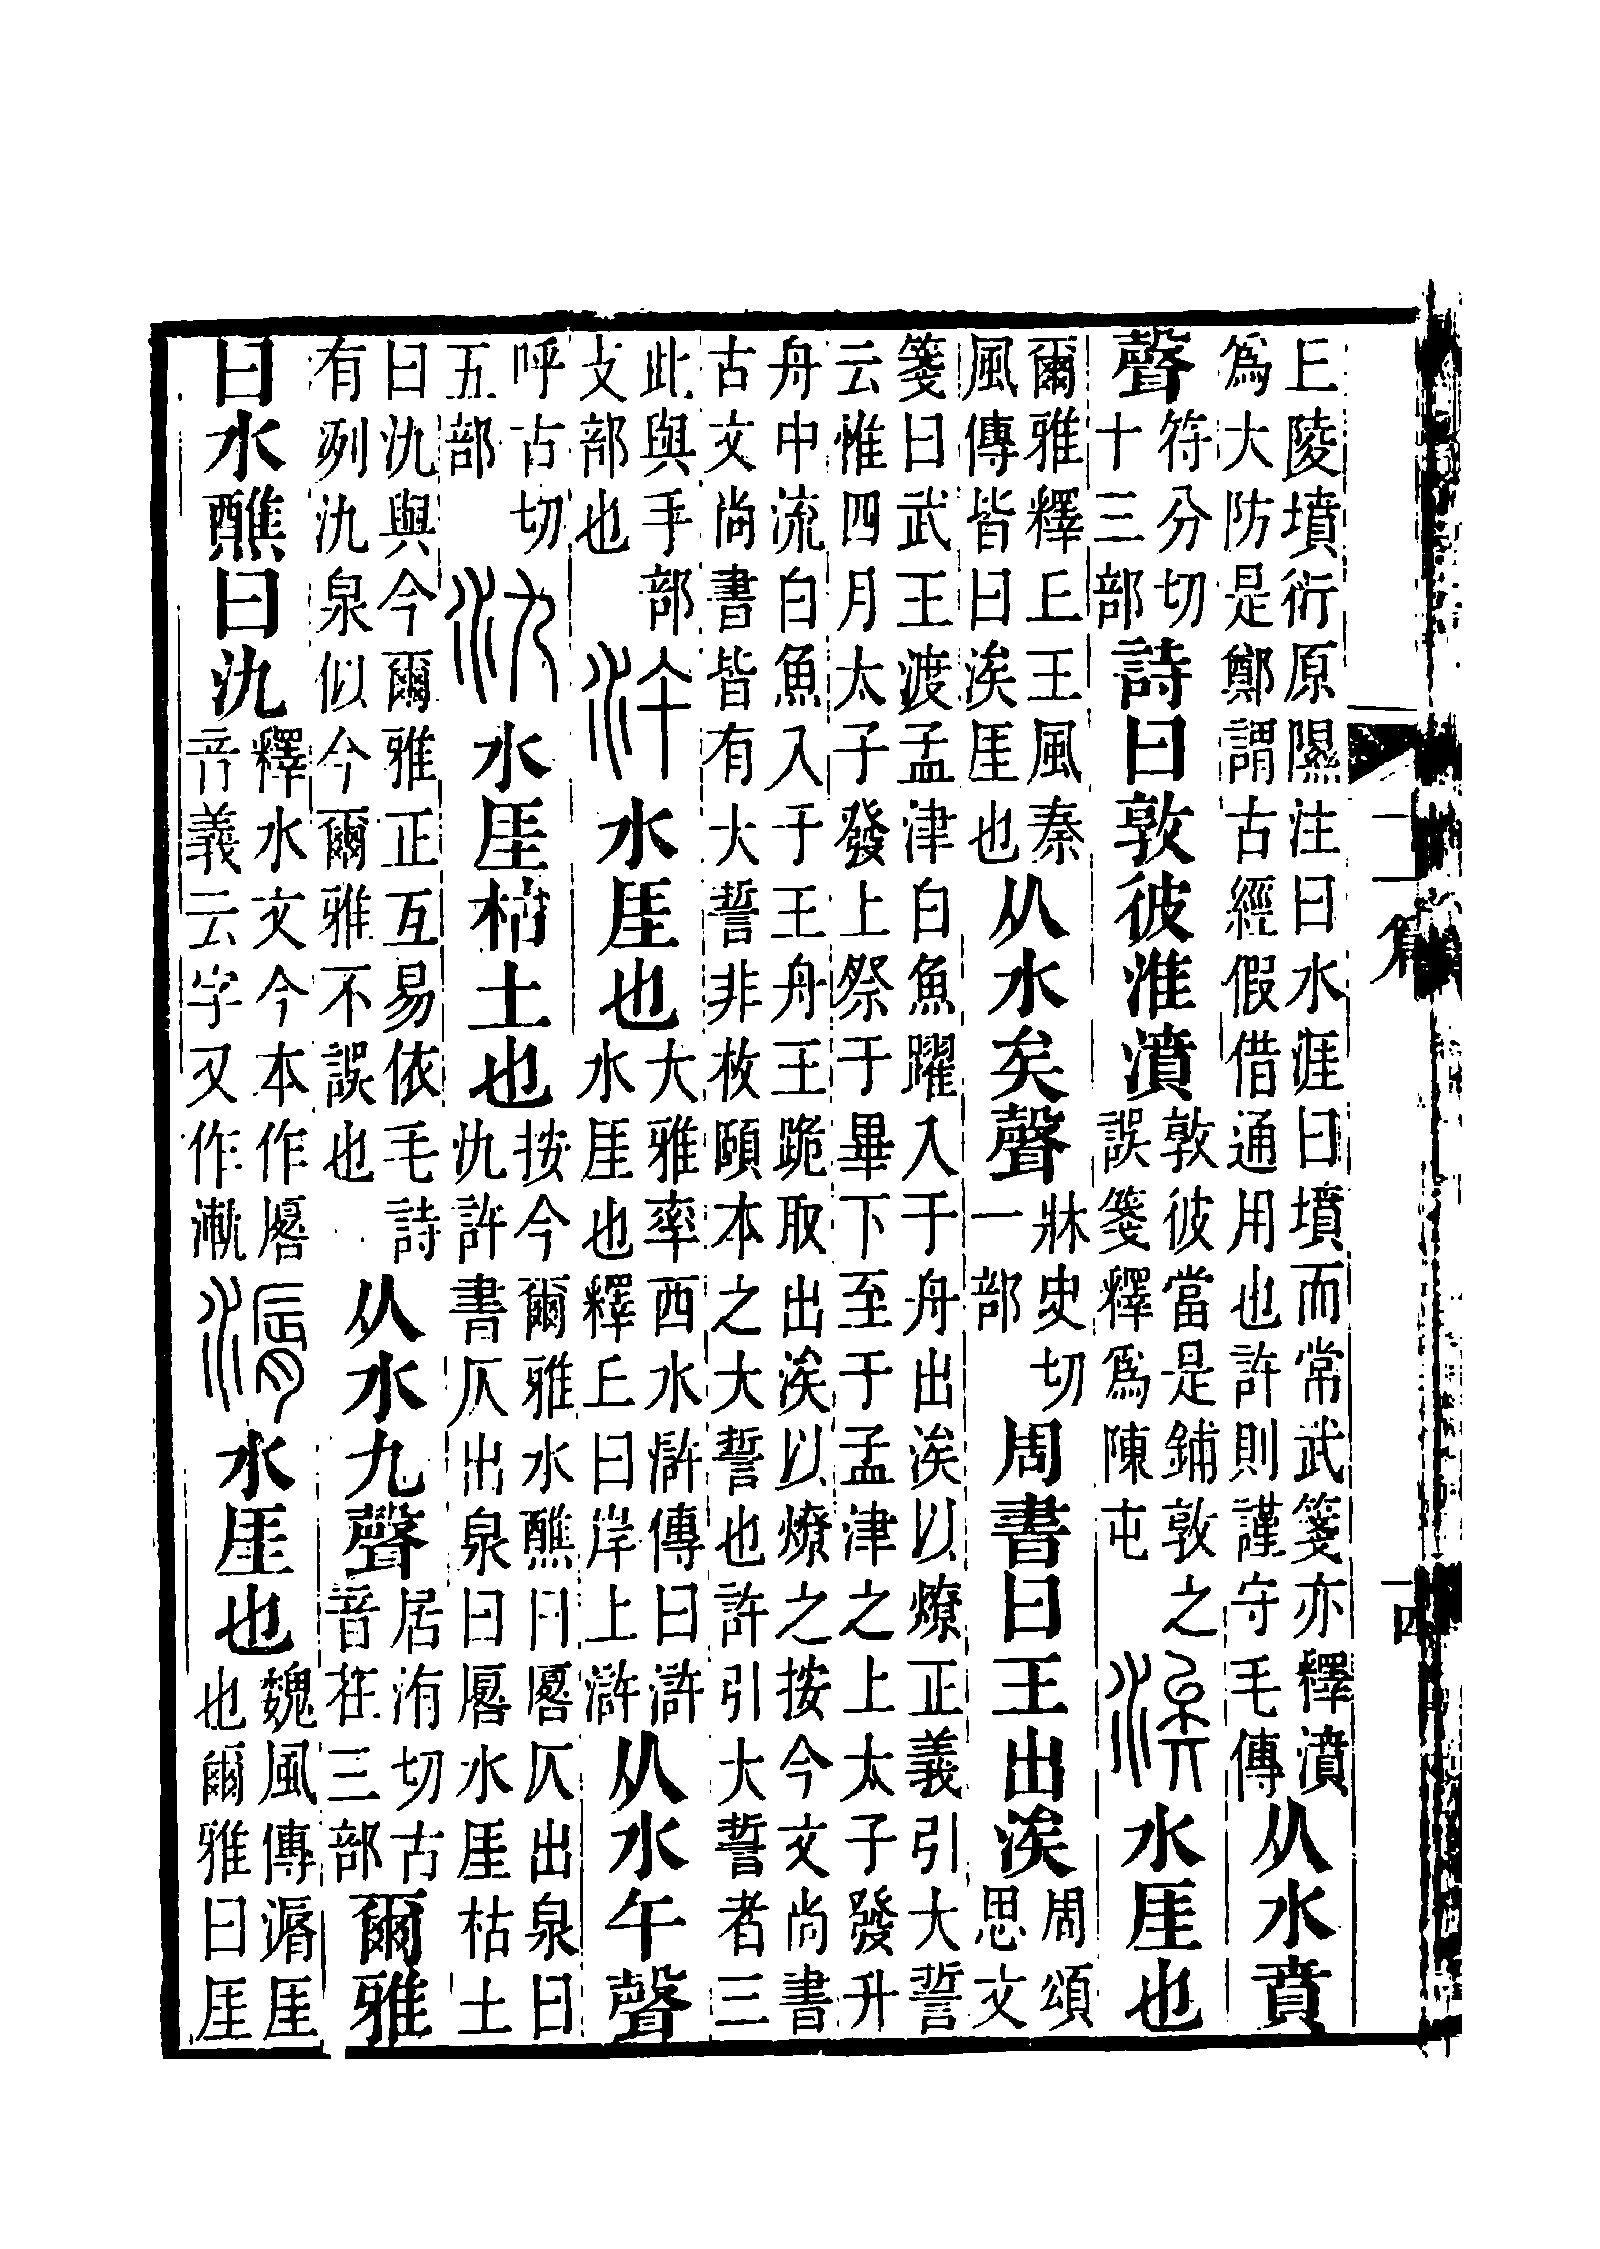 丘陵墳衍原隰注曰水涯曰墳而常武箋亦釋濆爲大防是鄭謂古經假借通用也許則謹守毛傳从水賁
聲符分切十三部詩曰敦彼淮濆敦彼當是鋪敦之誤箋釋爲陳屯涘水厓也
爾雅釋丘王風秦風傳皆曰涘厓也从水矣聲牀史切一部周書曰王出涘周頌思文
箋曰武王渡孟津白魚躍入于舟出涘以燎正義引大誓云惟四月太子發上祭于畢下至于孟津之上太子發升
舟中流白魚入于王舟王跪取出涘以燎之按今文尚書古文尚書皆有大誓非枚頤本之大誓也許引大誓者三
此與手部攴部也汻水厓也大雅率西水滸傳曰滸水厓也釋丘曰岸上滸从水午聲
呼古切五部氿水厓枯土也按今爾雅水醮曰厬仄出泉曰氿許書仄出泉曰厬水厓枯土
曰氿與今爾雅正互易依毛詩有冽氿泉似今爾雅不誤也从水九聲居洧切古音在三部爾雅
曰水醮曰氿釋水文今本作厬音義云字又作漸漘水厓也魏風傳漘厓也爾雅曰厓